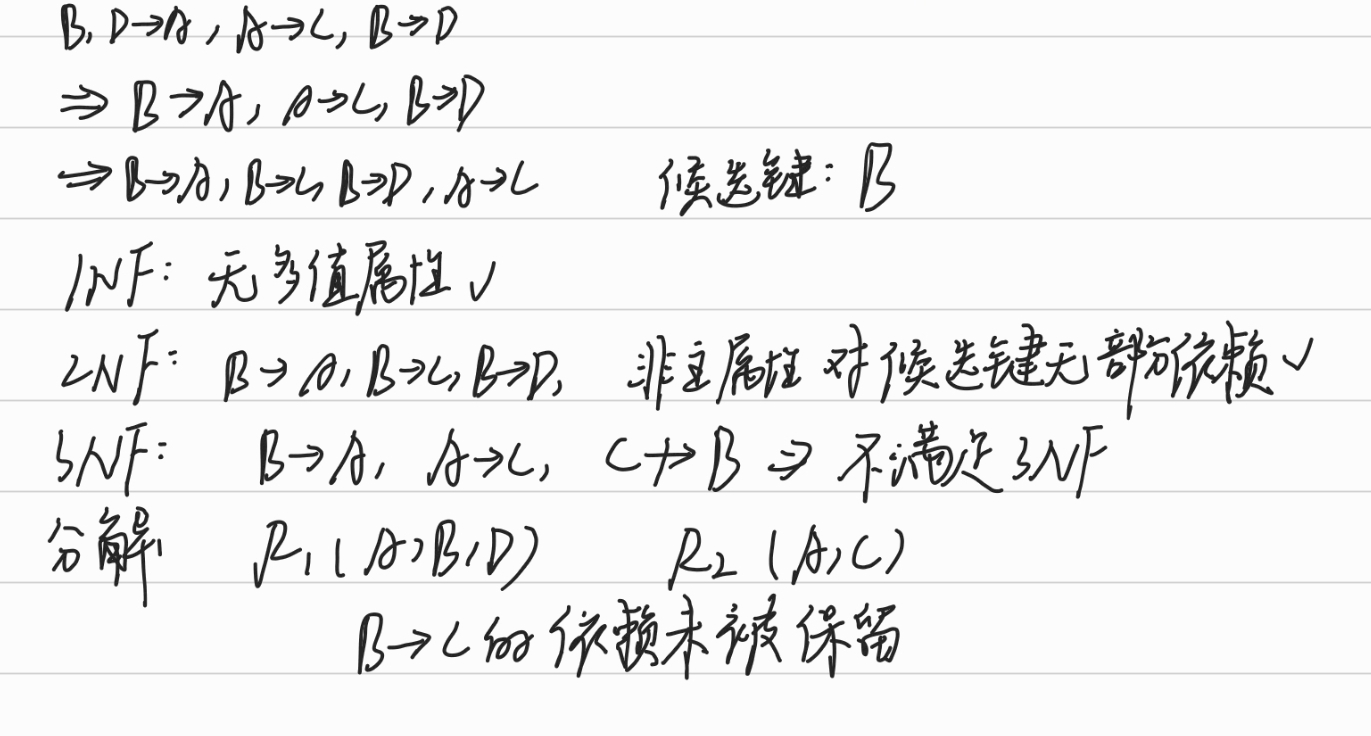 B, D→A, A→C, B→D
⇒ B→A, A→C, B→D
⇒ B→A, B→C, B→D, A→C 候选键: B
1NF: 无多值属性 ✓
2NF: B→A, B→C, B→D, 非主属性对候选键无部分依赖 ✓
3NF: B→A, A→C, C↛B ⇒ 不满足3NF
分解 R₁(A,B,D) R₂(A,C)
B→C的依赖未被保留